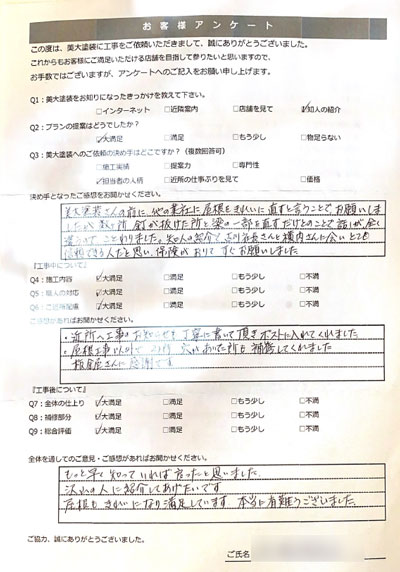 お客様アンケート
この度は、美大塗装に工事をご依頼いただきまして、誠にありがとうございました。
これからもお客様にご満足いただける店舗を目指して参りたいと思いますので、
お手数ではございますが、アンケートへのご記入をお願い申し上げます。
Q1：美大塗装をお知りになったきっかけを教えて下さい。
□インターネット □近隣案内 □店舗を見て ☑知人の紹介
Q2：プランの提案はどうでしたか？
☑大満足 □満足 □もう少し □物足らない
Q3：美大塗装へのご依頼の決め手はどこですか？（複数回答可）
□施工実績 □提案力 □専門性
☑担当者の人柄 □近所の仕事ぶりを見て □価格
決め手となったご感想をお聞かせください。
美大塗装さんの前に、他の業社に屋根をきれいに直すと言うことで、お願いしま
したが数ヶ所釘が抜けた所と梁の一部を直すだけとのことで話しが全く
違うので、ことわりました。知人の紹介で、吉川社長さんと横内さんに会いとても
信頼できる人だと思い、保険がおりてすぐお願いしました。
【工事中について】
Q4：施工内容 ☑大満足 □満足 □もう少し □不満
Q5：職人の対応 ☑大満足 □満足 □もう少し □不満
Q6：ご近所配慮 ☑大満足 □満足 □もう少し □不満
ご感想があればお聞かせください。
・近所へ工事のお知らせを丁寧に書いて頂きポストに入れてくれました
・屋根工事以外で 穴があいてた所も補修してくれました
板金屋さんに感謝です
【工事後について】
Q7：全体の仕上り ☑大満足 □満足 □もう少し □不満
Q8：補修部分 ☑大満足 □満足 □もう少し □不満
Q9：総合評価 ☑大満足 □満足 □もう少し □不満
全体を通してのご意見・ご感想があればお聞かせください。
もっと早く知っていれば良かったと思いました。
次の人に紹介してあげたいです
屋根もきれいになり満足しています 本当に有難うございました。
ご協力、誠にありがとうございました。
ご氏名